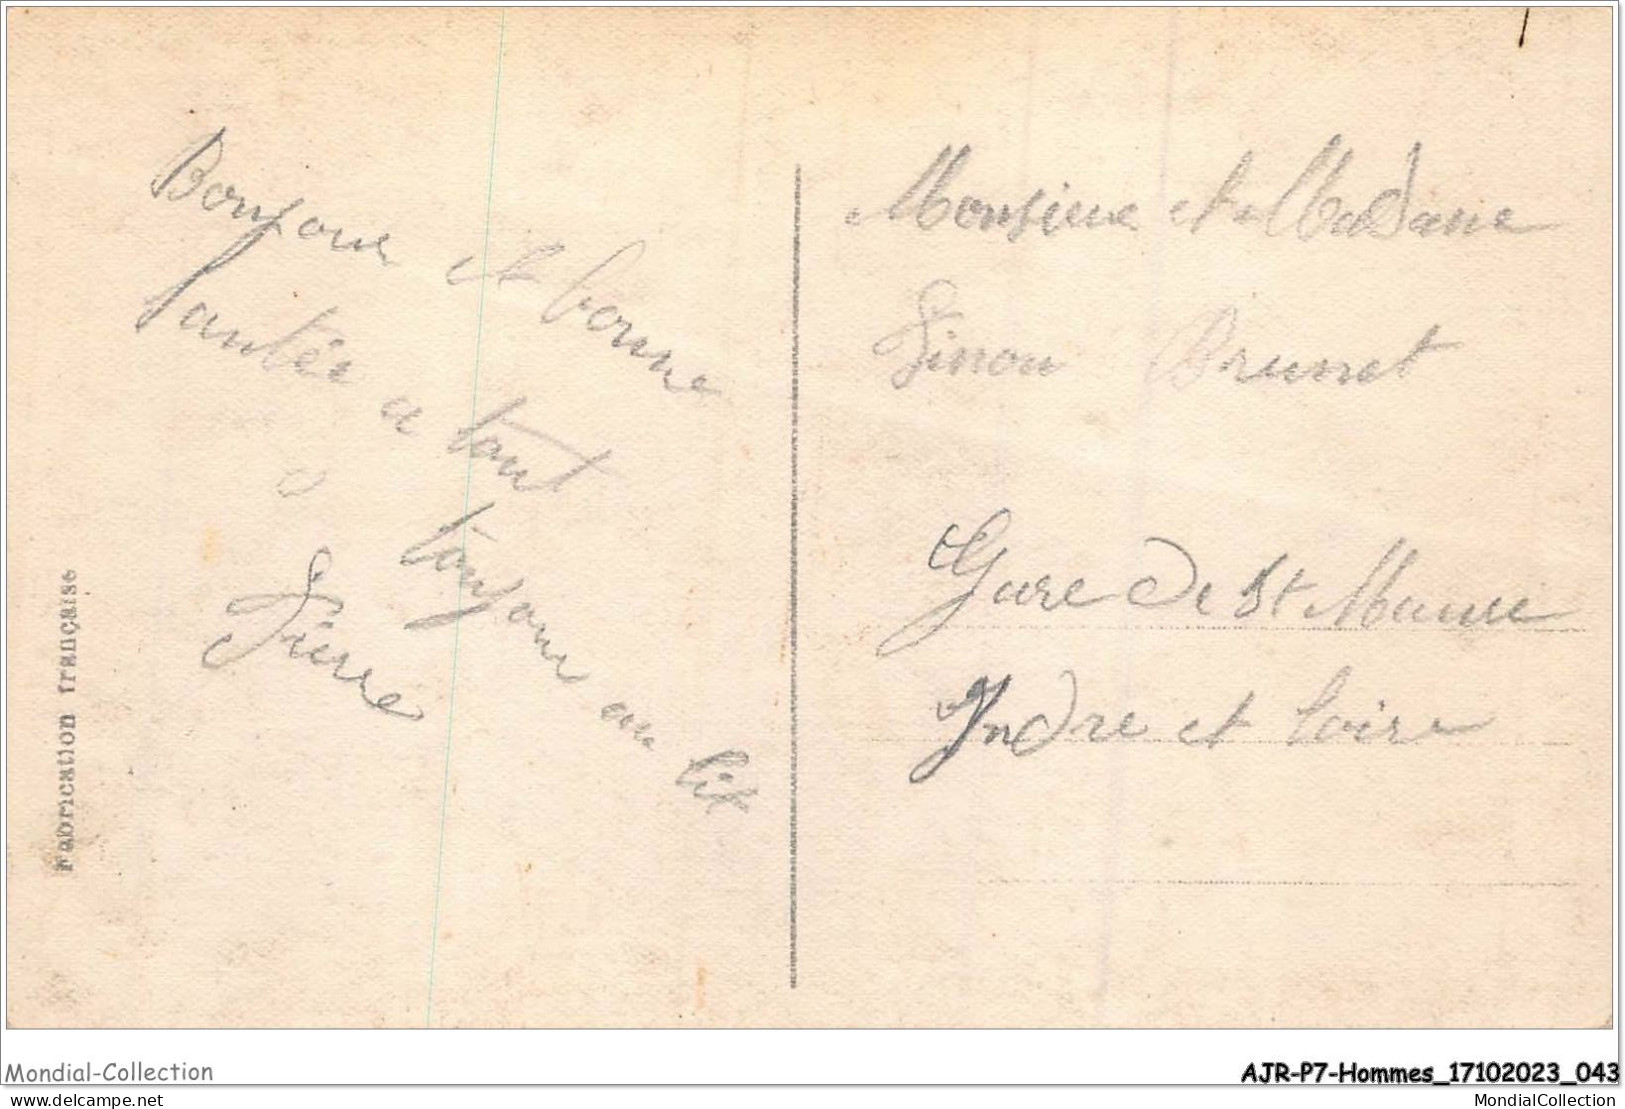 Bonjour et bonne
santée a tout
toujour au lit
Pierre
Monsieur et Madame
Sinon Brunet
Gare de St Maure
Indre et Loire
Fabrication française
Mondial-Collection
AJR-P7-Hommes_17102023_043
delcampe.net
MondialCollection